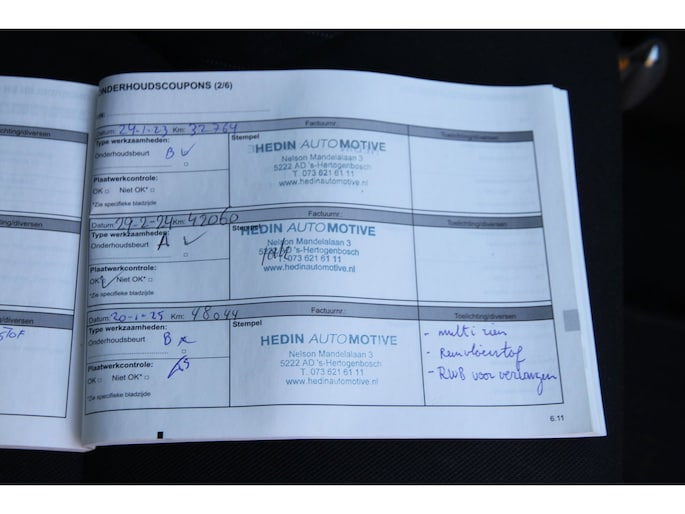 ONDERHOUDSCOUPONS (2/6)
Datum: 24-1-23 Km: 32764 Factuurnr.: Toelichting/diversen
Type werkzaamheden: Stempel
Onderhoudsbeurt B
HEDIN AUTOMOTIVE
Nelson Mandelalaan 3
5222 AD 's-Hertogenbosch
T. 073 621 61 11
www.hedinautomotive.nl
Plaatwerkcontrole:
OK Niet OK*
*Zie specifieke bladzijde
Datum: 29-2-24 Km: 42060 Factuurnr.: Toelichting/diversen
Type werkzaamheden: Stempel
Onderhoudsbeurt A
HEDIN AUTOMOTIVE
Nelson Mandelalaan 3
5222 AD 's-Hertogenbosch
T. 073 621 61 11
www.hedinautomotive.nl
Plaatwerkcontrole:
OK Niet OK*
*Zie specifieke bladzijde
Datum: 20-1-25 Km: 48044 Factuurnr.: Toelichting/diversen
Type werkzaamheden: Stempel
Onderhoudsbeurt B
HEDIN AUTOMOTIVE
Nelson Mandelalaan 3
5222 AD 's-Hertogenbosch
T. 073 621 61 11
www.hedinautomotive.nl
Plaatwerkcontrole:
OK Niet OK*
*Zie specifieke bladzijde
- multi riem
- Remvloeistof
- RWB voor vervangen
6.11